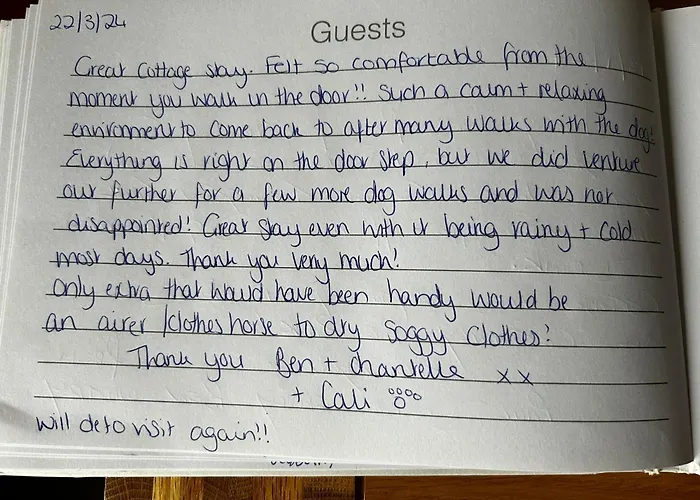 22/3/24
Guests
Great Cottage stay. Felt so comfortable from the
moment you walk in the door!! Such a calm + relaxing
environment to come back to after many walks with the dog!
Everything is right on the door step, but we did venture
out further for a few more dog walks and was not
disappointed! Great stay even with it being rainy + cold
most days. Thank you very much!
Only extra that would have been handy would be
an airer /clothes horse to dry soggy clothes!
Thank you Ben + Chantelle xx
+ Cali
will defo visit again!!